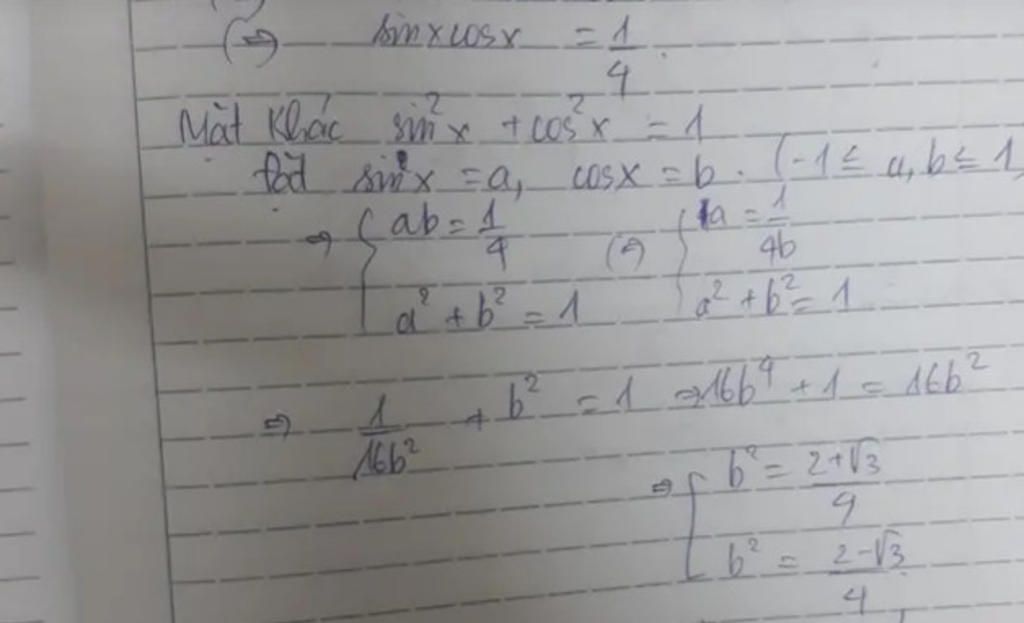 (⇔) sinxcosx = 1/4
Mặt khác sin²x + cos²x = 1
Đặt sin x = a, cosx = b. (-1 ≤ a, b ≤ 1
⇒ { ab = 1/4 (⇔) { a = 1/4b
a² + b² = 1 a² + b² = 1
⇒ 1/16b² + b² = 1 ⇒ 16b⁴ + 1 = 16b²
⇒ [ b² = 2+√3/4
b² = 2-√3/4